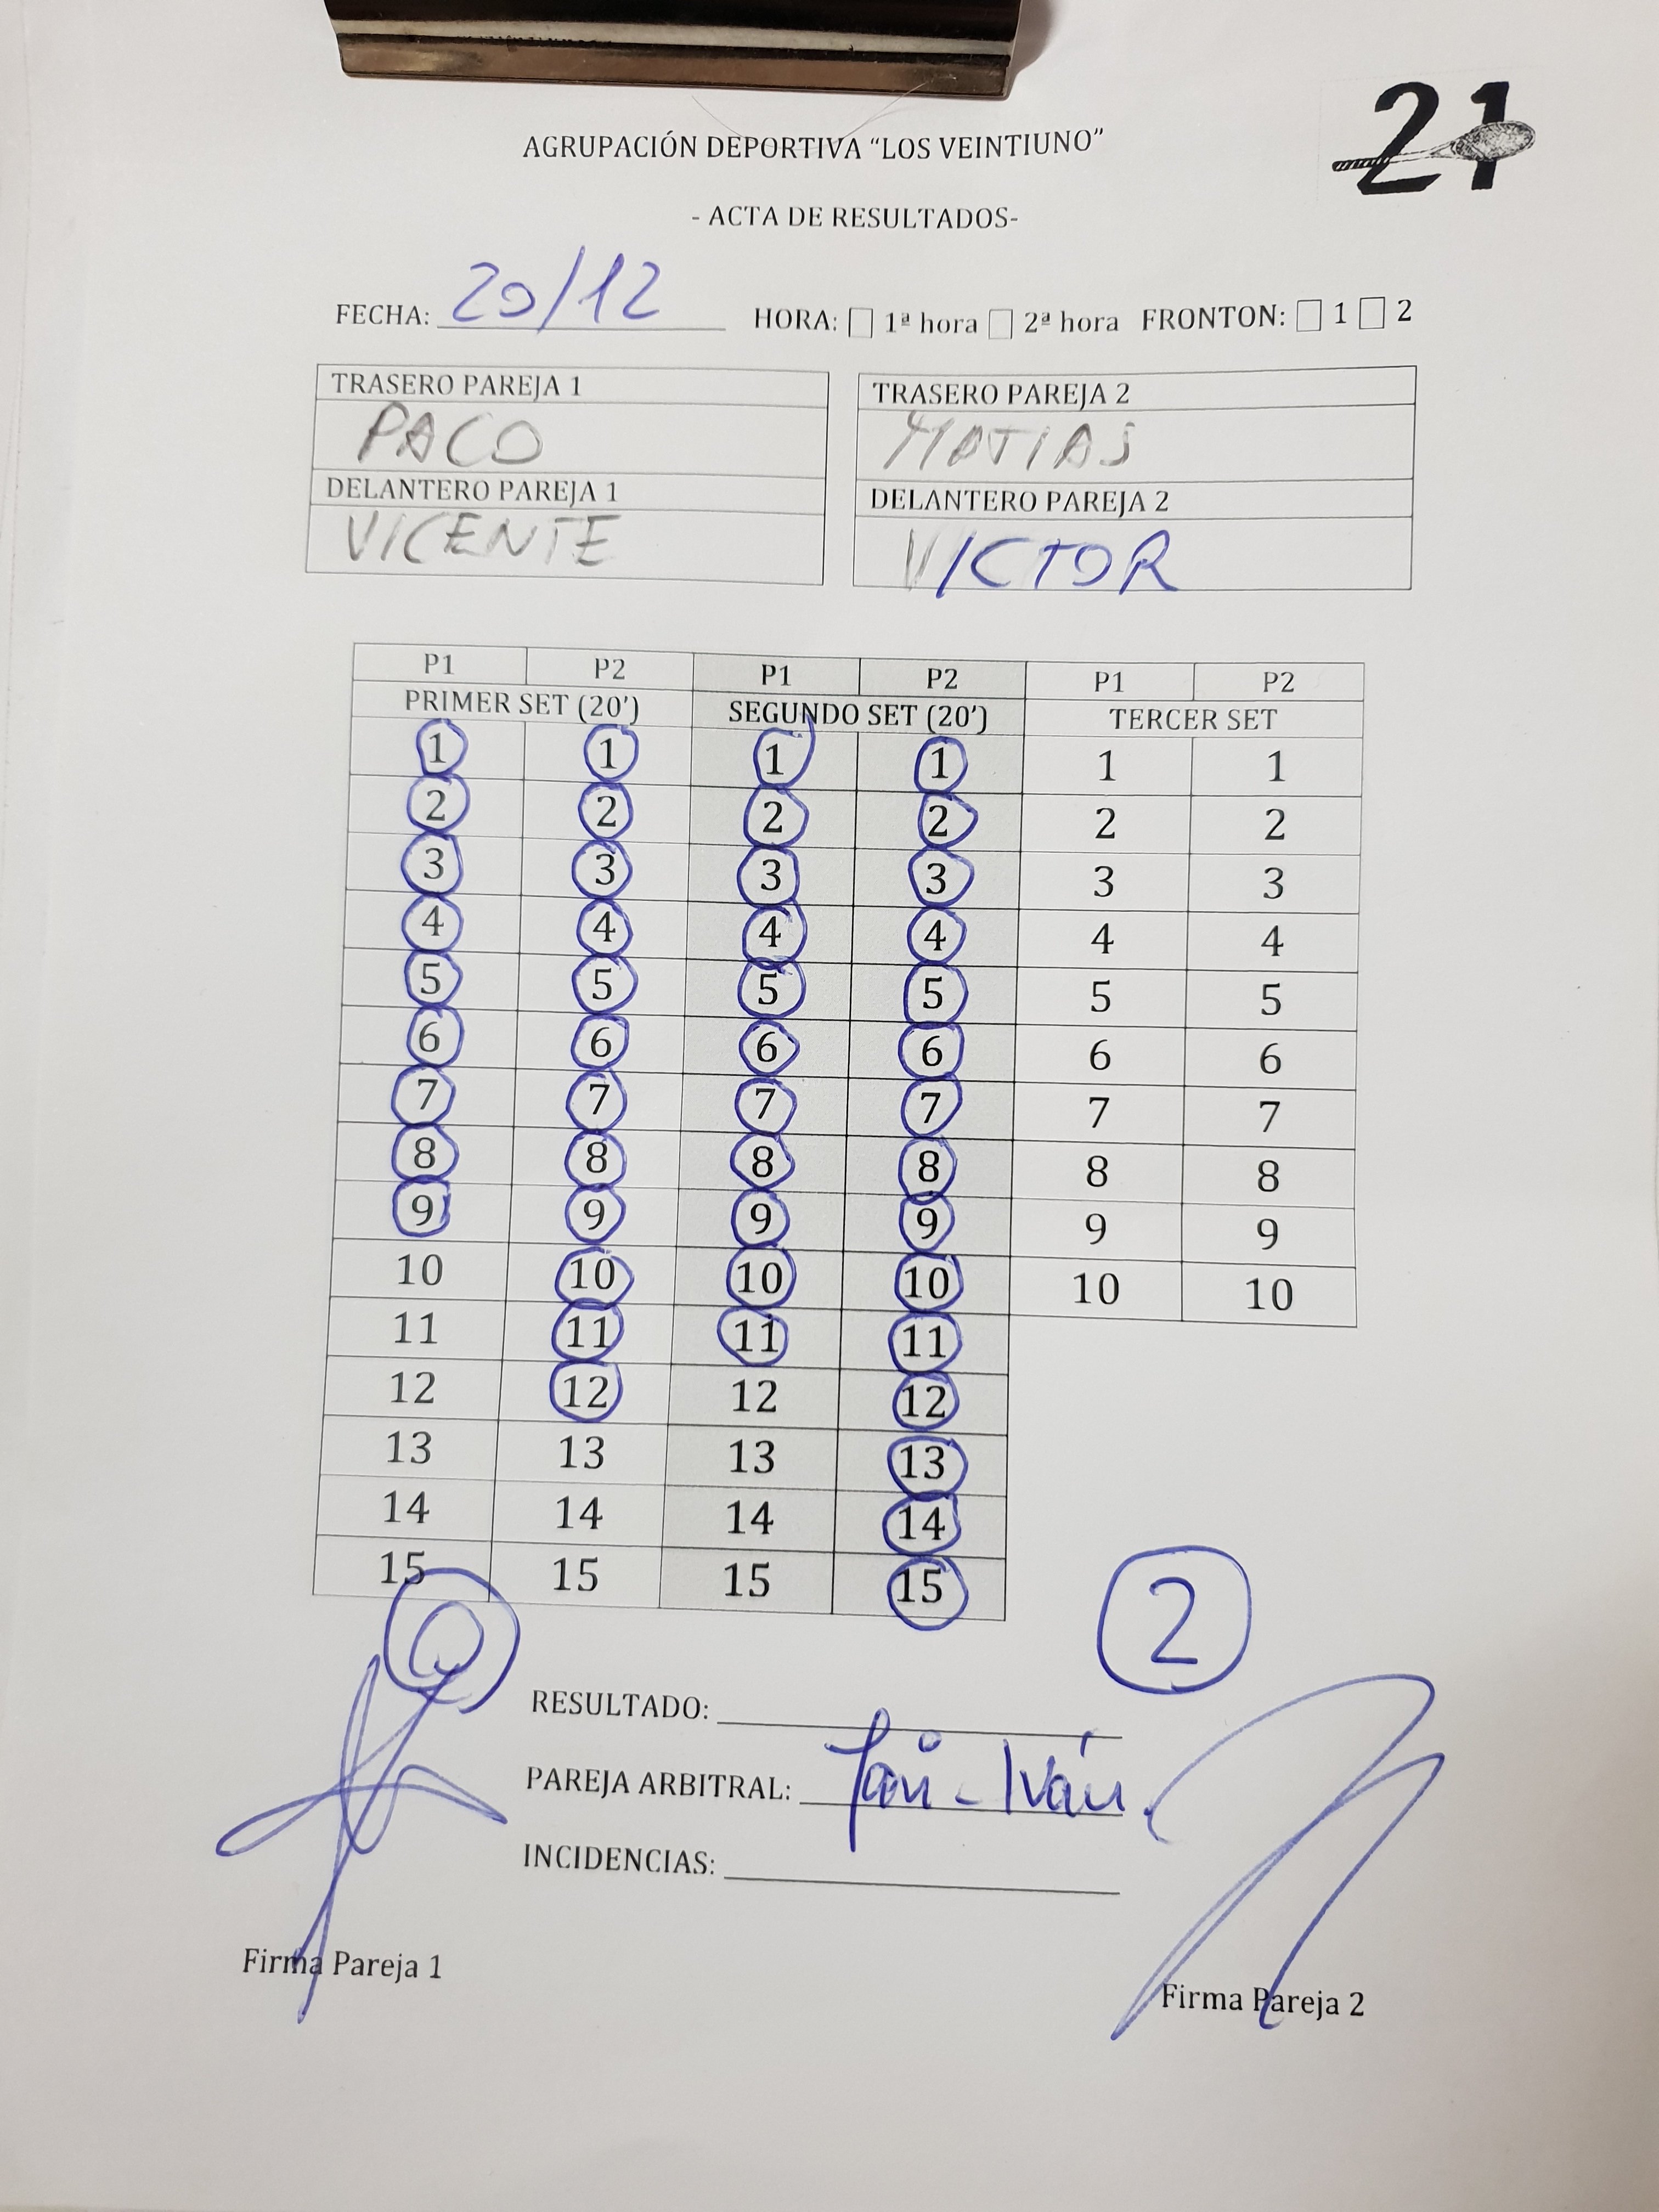 21
AGRUPACIÓN DEPORTIVA “LOS VEINTIUNO”
- ACTA DE RESULTADOS-
FECHA: 20/12 HORA: 1ª hora 2ª hora FRONTON: 1 2
TRASERO PAREJA 1
PACO
DELANTERO PAREJA 1
VICENTE
TRASERO PAREJA 2
MATIAS
DELANTERO PAREJA 2
VICTOR
P1 P2 P1 P2 P1 P2
PRIMER SET (20') SEGUNDO SET (20') TERCER SET
1 1 1 1 1 1
2 2 2 2 2 2
3 3 3 3 3 3
4 4 4 4 4 4
5 5 5 5 5 5
6 6 6 6 6 6
7 7 7 7 7 7
8 8 8 8 8 8
9 9 9 9 9 9
10 10 10 10 10 10
11 11 11 11
12 12 12 12
13 13 13 13
14 14 14 14
15 15 15 15
2
RESULTADO:
PAREJA ARBITRAL: - Iván
INCIDENCIAS:
Firma Pareja 1
Firma Pareja 2